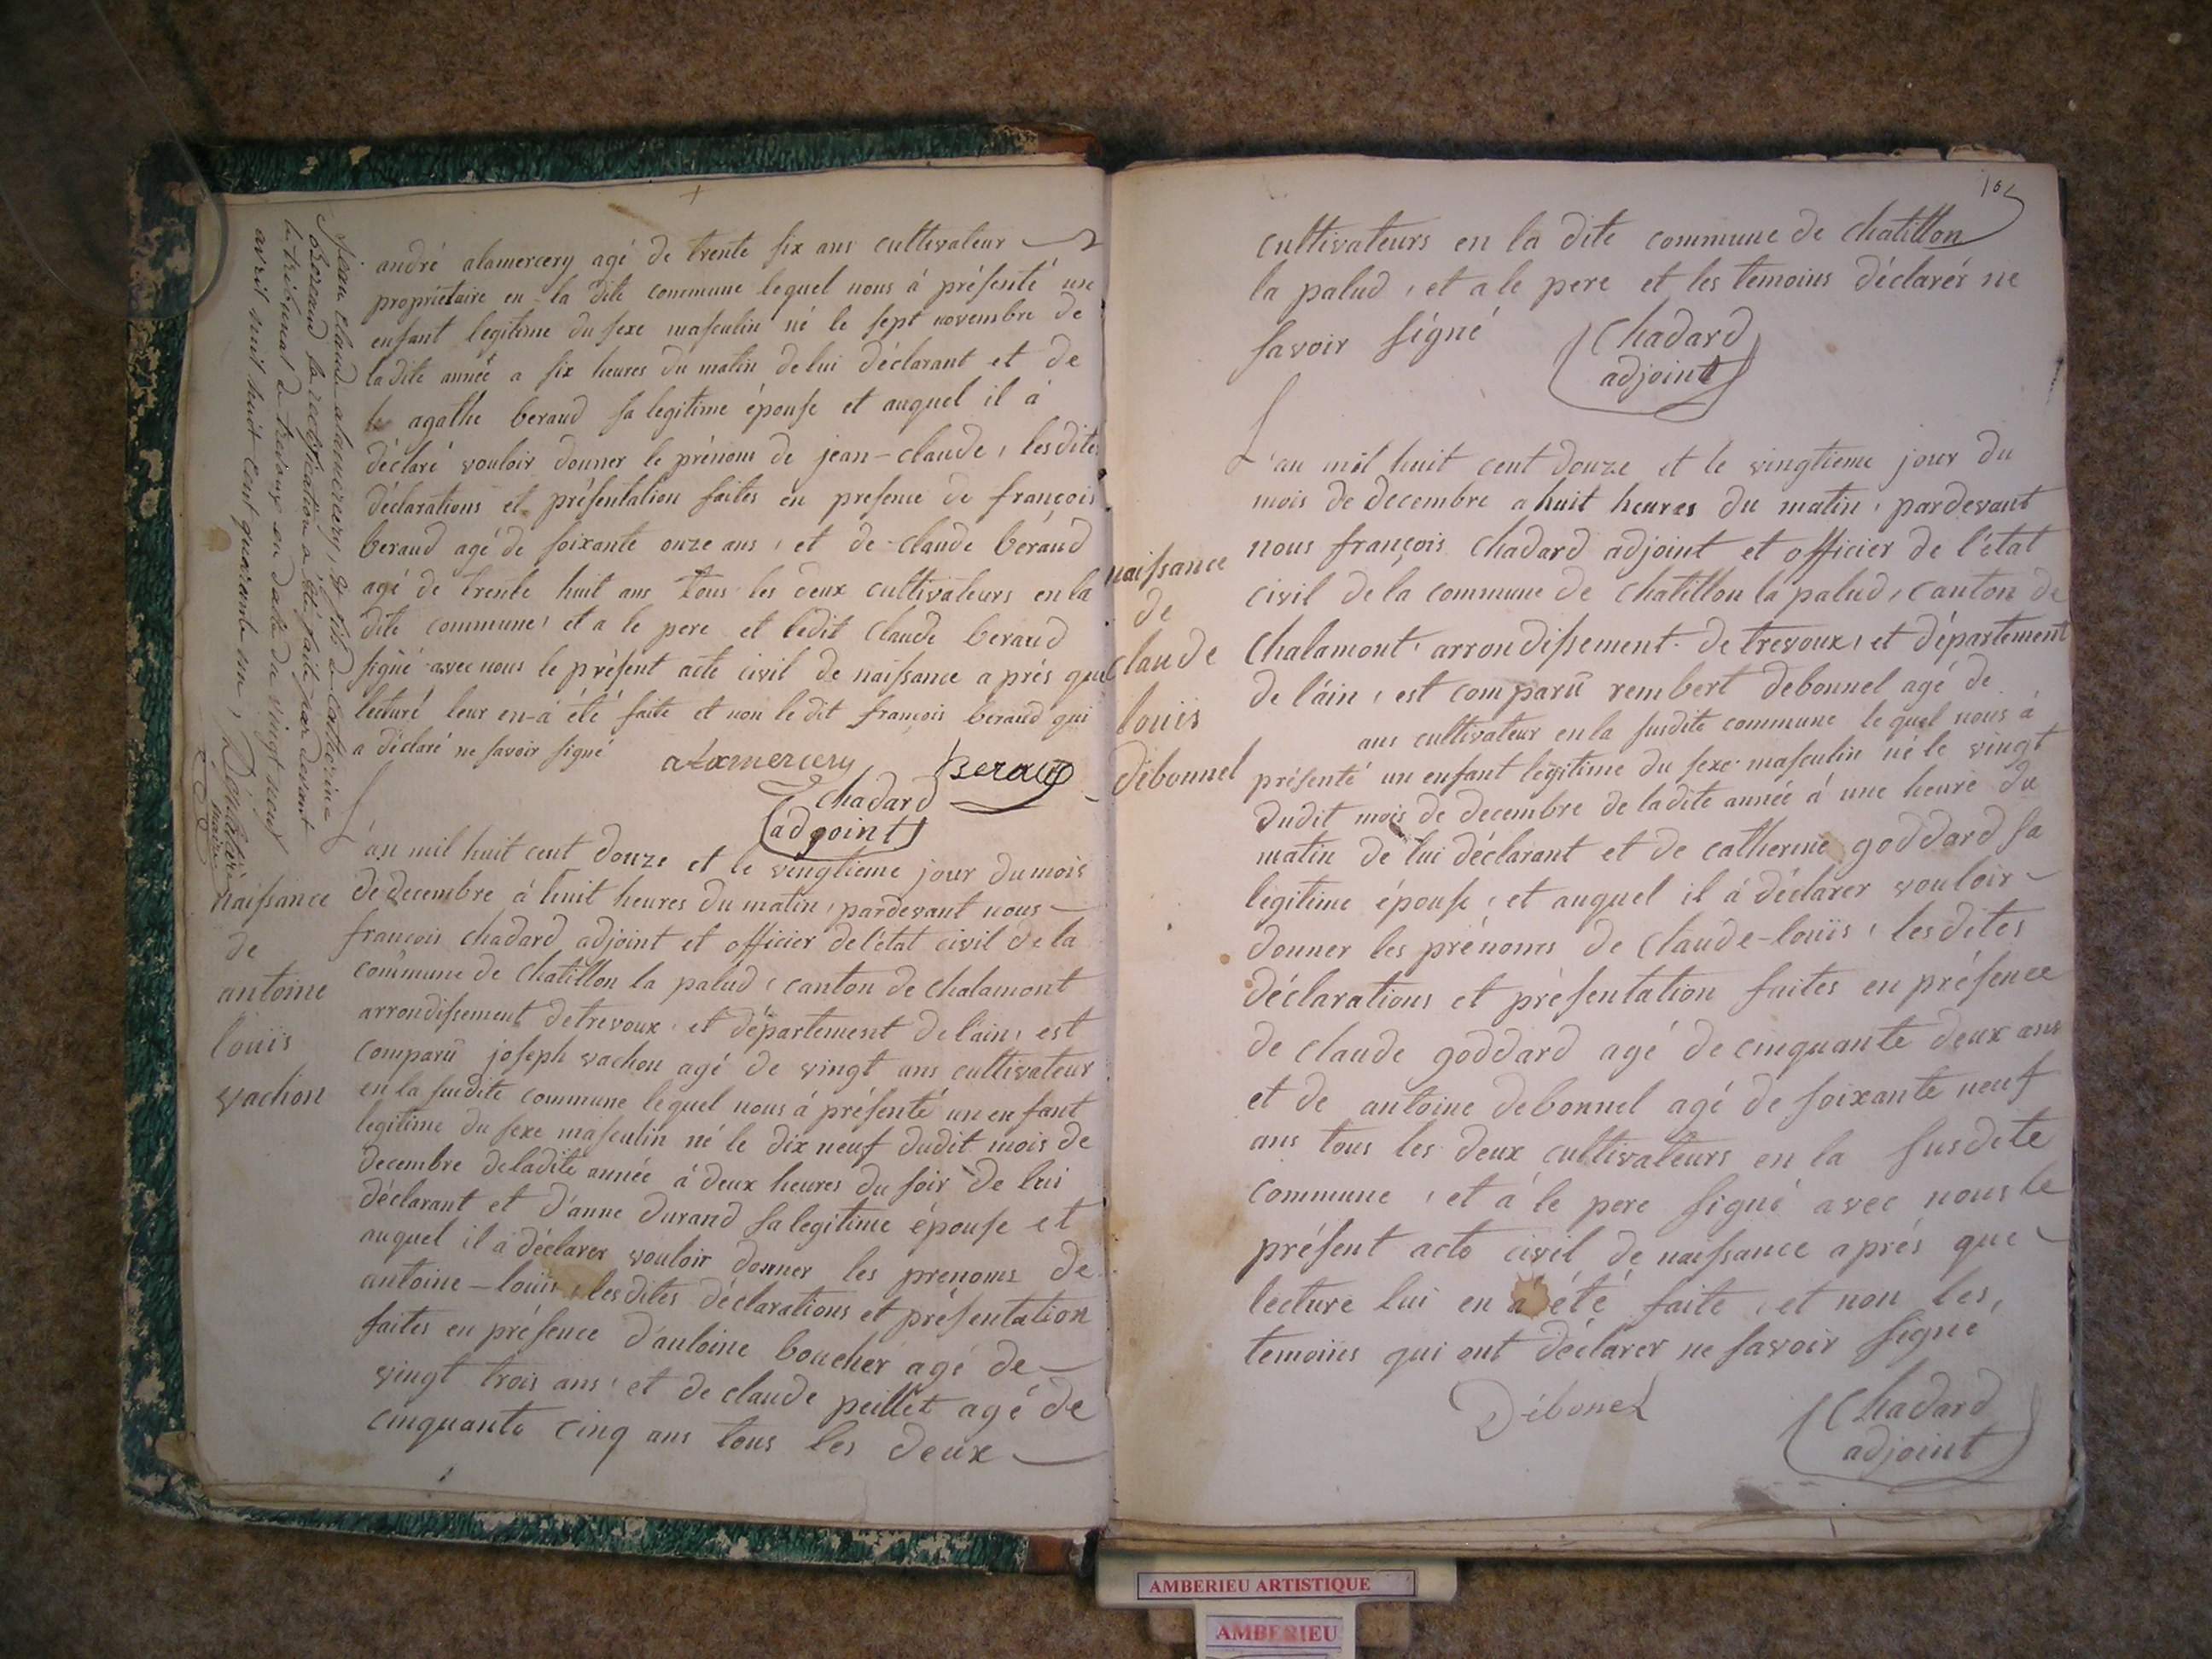 andré alamercery agé de trente six ans cultivateur
propriétaire en la dite commune lequel nous à présenté un
enfant legitime du sexe masculin né le sept novembre de
la dite année a six heures du matin de lui déclarant et de
agathe beraud sa legitime épouse et auquel il à
déclaré vouloir donner le prénom de jean-claude, lesdites
déclarations et présentation faites en presence de françois
beraud agé de soixante onze ans, et de claude béraud
agé de trente huit ans tous les deux cultivateurs en la
dite commune, et a le pere et ledit claude beraud
signé avec nous le présent acte civil de naissance aprés que
lecturé leur en-à été faite et non le dit françois beraud qui
a déclaré ne savoir signé
alamercery
Beraud
chadard
adjoint
Jean claude alamercery, & fils de Catherine
Béraud la rectification a été faite par devant
le tribunal de trévoux en date du vingt neuf
avril mil huit cent quarante un,
maire
naissance
de
antoine
louis
vachon
L'an mil huit cent douze et le vingtieme jour du mois
de decembre à huit heures du matin, pardevant nous
françois chadard adjoint et officier de l'état civil de la
commune de chatillon la palud, canton de chalamont
arrondissement de trevoux, et département de l'ain, est
comparu joseph vachon agé de vingt ans cultivateur
en la susdite commune lequel nous à présenté un enfant
legitime du sexe masculin né le dix neuf dudit mois de
decembre de ladite année à deux heures du soir de lui
déclarant et d'anne durand sa legitime épouse et
auquel il à déclarer vouloir donner les prenoms de
antoine-louis, lesdites déclarations et présentation
faites en présence d'antoine boucher agé de
vingt trois ans, et de claude peillet agé de
cinquante cinq ans tous les deux
cultivateurs en la dite commune de chatillon
la palud, et a le pere et les temoins déclarér ne
savoir signé
Chadard
adjoint
naissance
de
claude
louis
débonnel
L'an mil huit cent douze et le vingtieme jour du
mois de decembre a huit heures du matin, pardevant
nous françois chadard adjoint et officier de l'état
civil de la commune de chatillon la palud, canton de
Chalamont, arrondissement de trevoux, et département
de l'ain, est comparu rembert debonnel agé de
ans cultivateur en la susdite commune le quel nous à
présenté un enfant legitime du sexe masculin né le vingt
dudit mois de decembre de ladite année à une heure du
matin de lui déclarant et de catherine goddard sa
legitime épouse, et auquel il à déclarer vouloir
donner les prénoms de claude-louis, lesdites
déclarations et présentation faites en présence
de claude goddard agé de cinquante deux ans
et de antoine debonnel agé de soixante neuf
ans tous les deux cultivateurs en la susdite
commune, et à le pere signé avec nous le
présent acte civil de naissance aprés que
lecture lui en à été faite, et non les,
temoins qui ont déclarer ne savoir signé
Débonel
Chadard
adjoint
AMBERIEU ARTISTIQUE
AMBERIEU